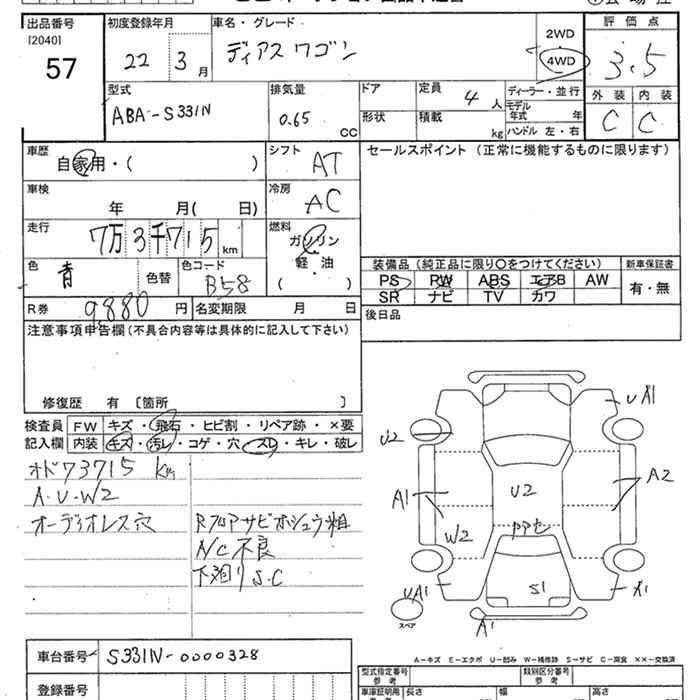 出品番号 初度登録年月 車名・グレード 評価点
[2040]
57 22 3月 ディアスワゴン 2WD 4WD 3.5
型式 排気量 ドア 定員 ディーラー・並行 外装 内装
ABA-S331N 0.65 CC 形状 4人 積載 kg モデル年式 年 ハンドル 左・右 C C
車歴 シフト セールスポイント (正常に機能するものに限ります)
自家用・( ) AT
車検 冷房
年 月( 日) AC
走行 燃料
7万3千715km ガソリン
軽・油
( )
色 色コード 装備品 (純正品に限り○をつけてください) 新車保証書
青 色替 B58 PS RW ABS エアB AW 有・無
SR ナビ TV カワ
R券 9880円 名変期限 月 日 後日品
注意事項申告欄(不具合内容等は具体的に記入して下さい)
修復歴 有 [箇所 ]
検査員 FW キズ・飛石・ヒビ割・リペア跡・×要
記入欄 内装 キズ・汚レ・コゲ・穴・スレ・キレ・破レ
オド73715km
A.U.W2
オーディオレス穴 RフロアサビホシュウR粗
A/C不良
下廻りS.C
UA1
U2
A1 A2
U2
W2
S1
UA1 X1
スペア
A1
A-キズ E-エクボ U-凹み W-補修跡 S-サビ C-腐食 ××-交換済
車台番号 S331N-0000328
型式指定番号 類別区分番号
参考 参考
登録番号 車庫証明用 長さ 幅 高さ